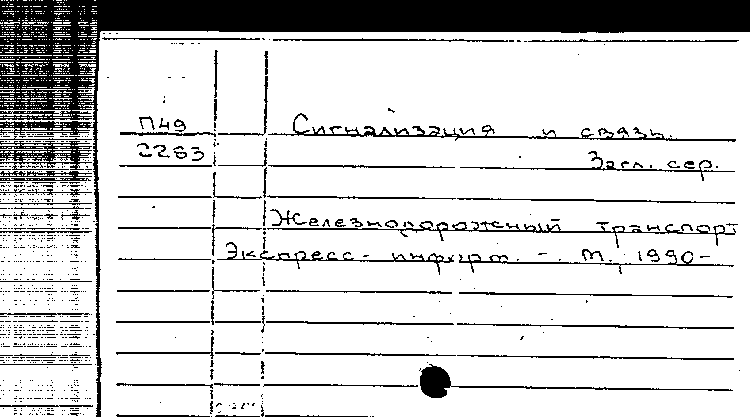 П49 Сигнализация и связь.
2263 Загл. сер.
Железнодорожный транспорт
Экспресс-информ. - М., 1990-